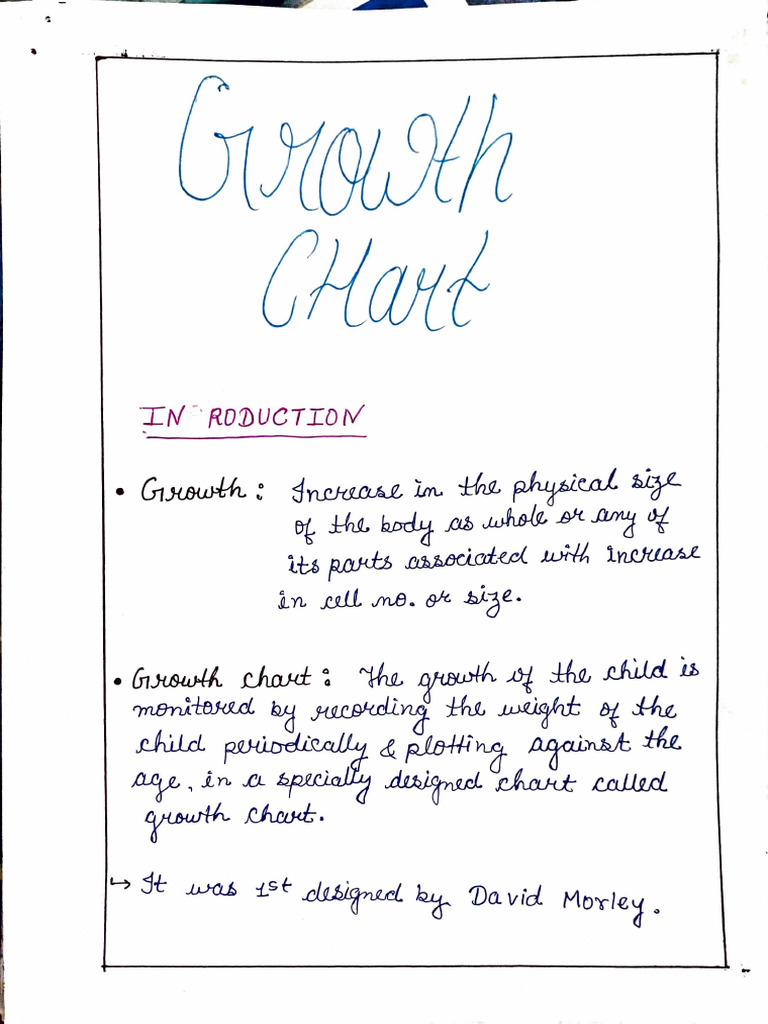 Growth
CHart
IN RODUCTION
• Growth: Increase in the physical size
of the body as whole or any of
its parts associated with increase
in cell no. or size.
• Growth chart: The growth of the child is
monitored by recording the weight of the
child periodically & plotting against the
age, in a specially designed chart called
growth chart.
↳ It was 1st designed by David Morley.